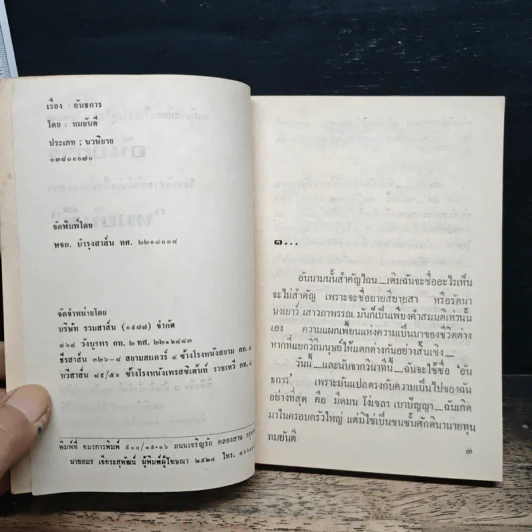 เรื่อง : อันธการ
โดย : ทมยันตี
ประเภท : นวนิยาย
๐๓๔๐๑๐๗๑
จัดพิมพ์โดย
หจก. บำรุงสาส์น ทศ. ๒๒๑๔๐๐๘
จัดจำหน่ายโดย
บริษัท รวมสาส์น (๑๙๗๗) จำกัด
๘๖๘ วังบูรพา กท. ๒ ทศ. ๒๒๑๒๘๔๓
ธีรสาส์น ๓๒๖—๘ สยามสแควร์ ๔ ข้างโรงหนังสยาม
ทวีสาส์น ๗๕/๕๑ ข้างโรงหนังเพรสซิเด้นท์ ราชเทวี กท. ๔
พิมพ์ที่ อมรการพิมพ์ ๕๐๐/๑๕-๑๖ ถนนเจริญรัถ คลองสาน
นายอมร เจิยระสุพัฒน์ ผู้พิมพ์ผู้โฆษณา ๒๕๒๔ โทร.
๑...
อันนามนั้นสำคัญไฉน...เดิมฉันจะชื่ออะไรเห็น
จะไม่สำคัญ เพราะจะชื่อยายสียายสา หรือรัตนา
นงเยาว์ เสาวภาพรรณ มันก็เป็นเพียงคำสมมติเท่านั้น
เอง ความแผกเพี้ยนแห่งความเป็นมาของชีวิตต่าง
หากที่แยกวิถีมนุษย์ให้แตกต่างกันอย่างสิ้นเชิง...
วันนี้...และนับจากวินาทีนี้...ฉันจะใช้ชื่อ 'อัน
ธการ' เพราะมันแปลตรงกับความเป็นไปของฉัน
อย่างที่สุด คือ มืดมน โง่เขลา เบาปัญญา...ฉันเกิด
มาในครอบครัวใหญ่ แต่มิใช่เป็นชนชั้นศักดินานายทุน
ทมยันตี
๓